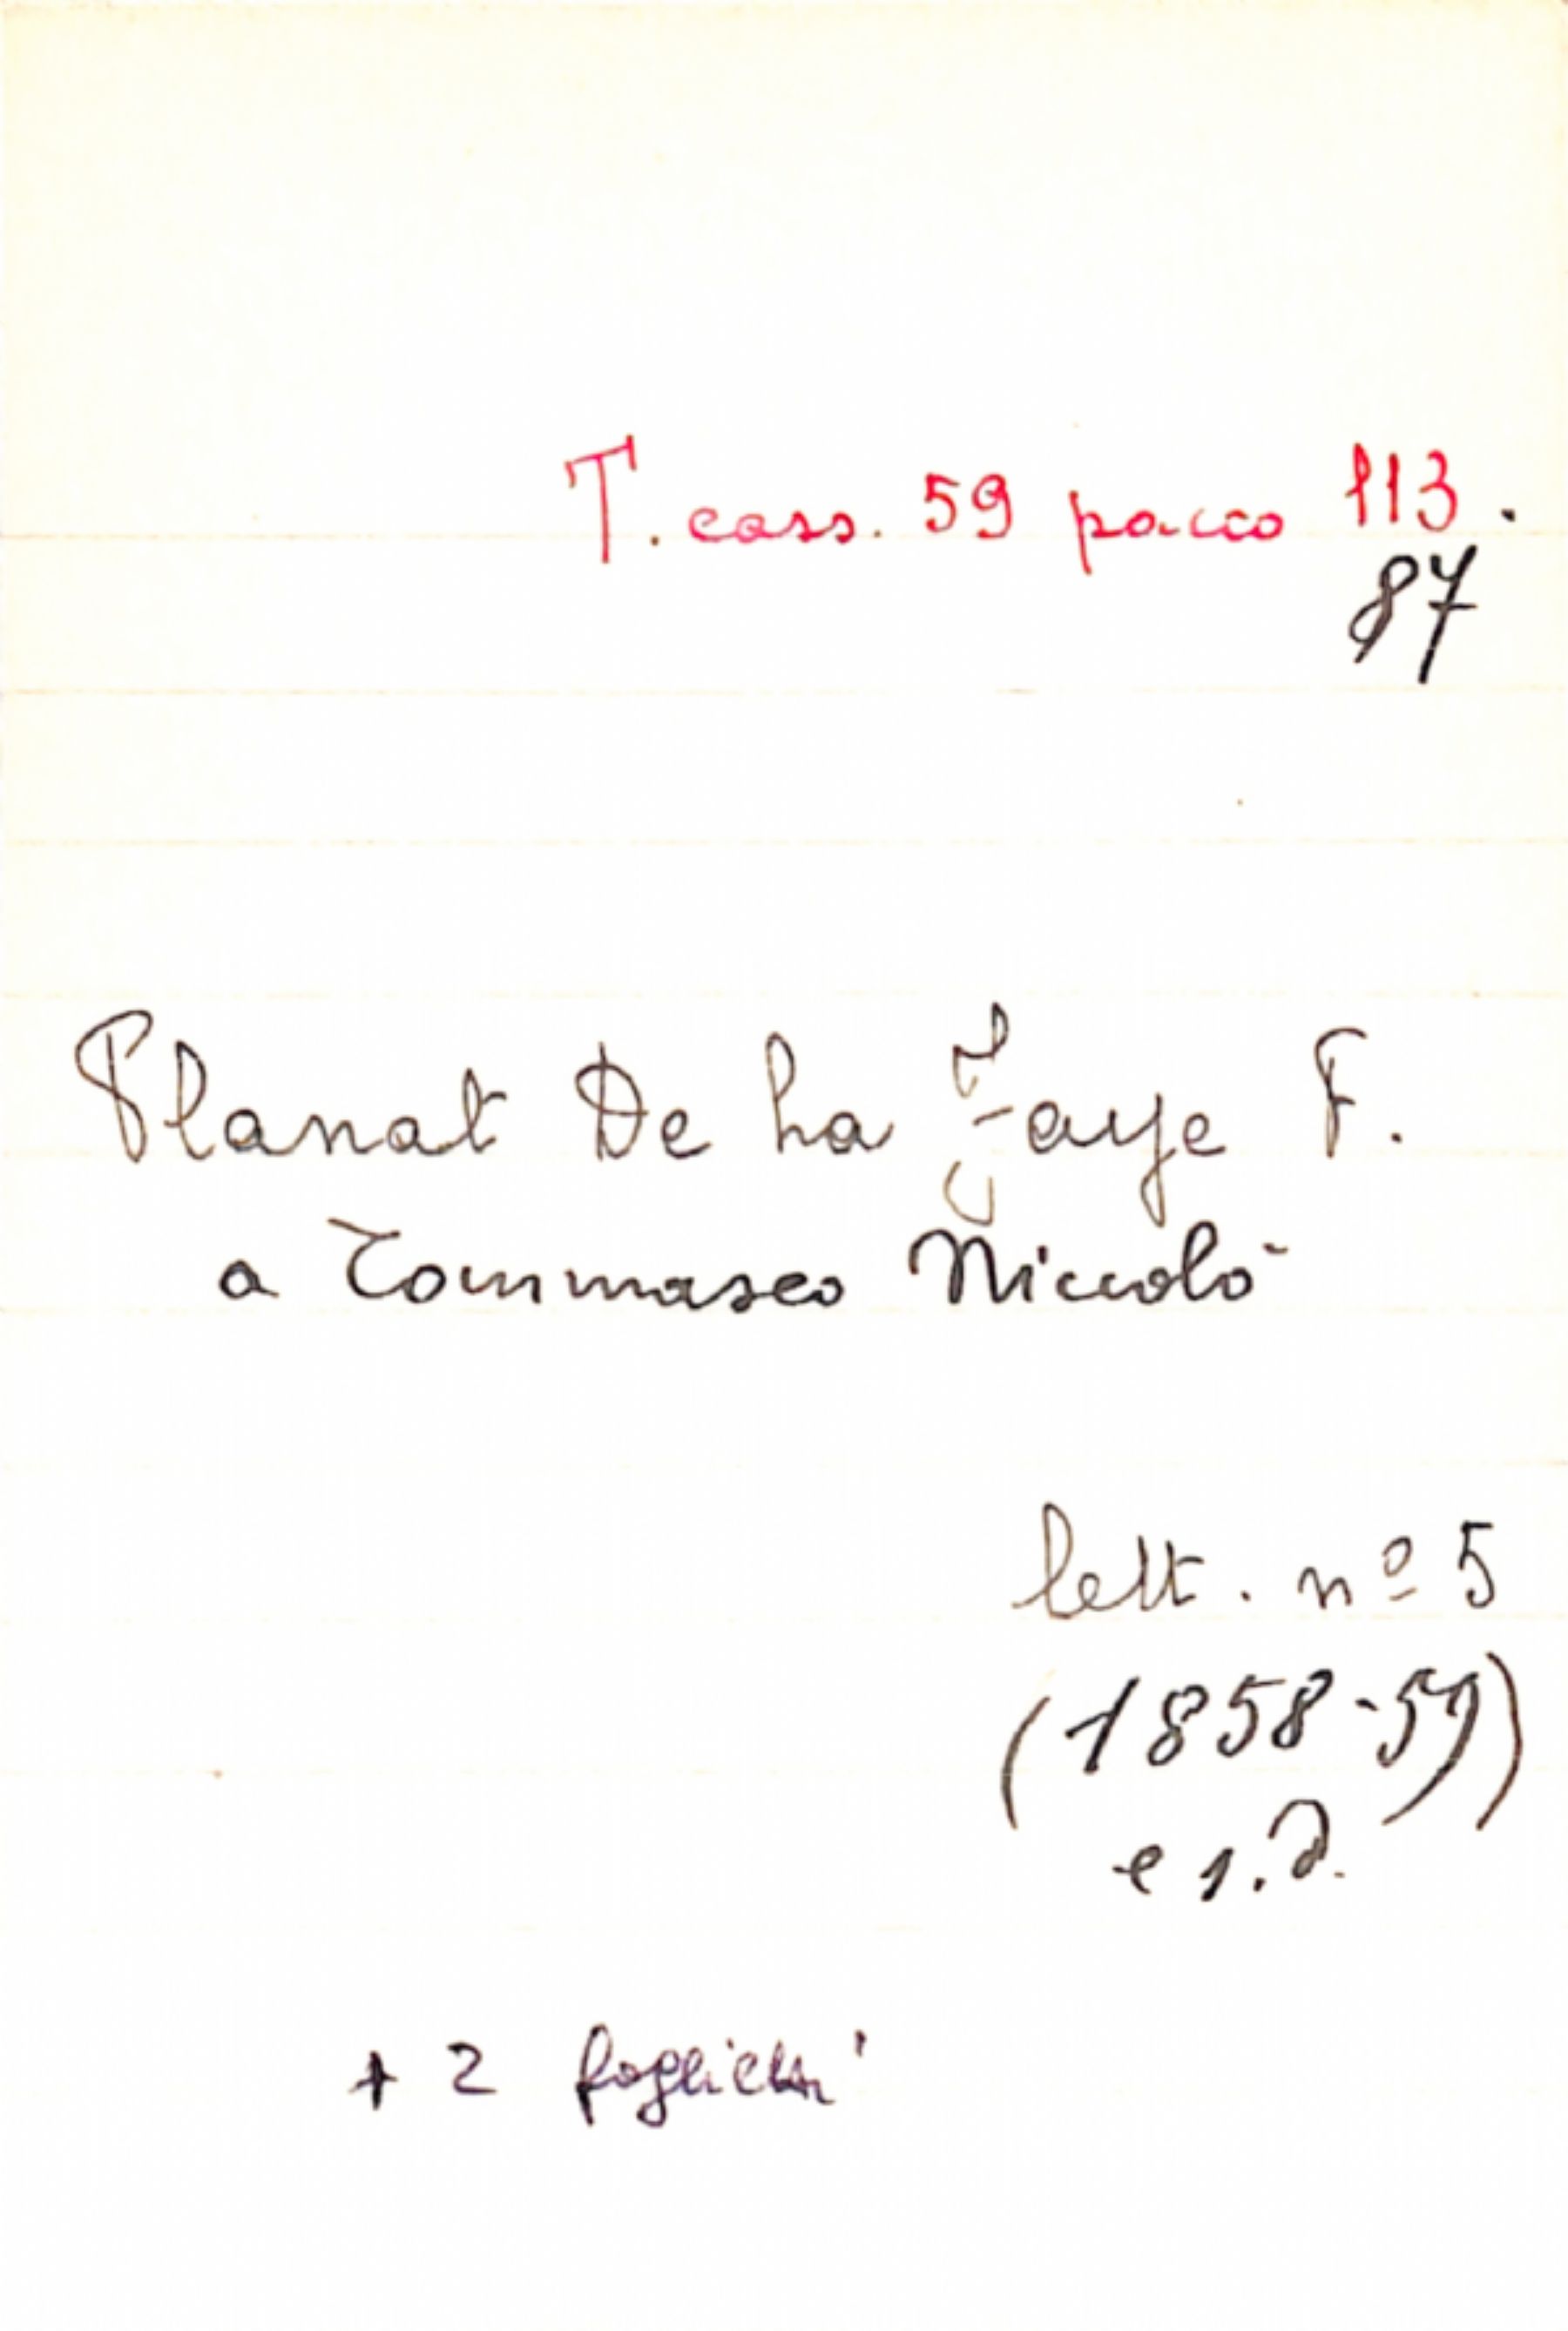 T. cass. 59 pacco 113.
87
Planat De La Faye F.
a Tommaseo Niccolò
lett. nº 5
(1858-59)
e s.d.
+ 2 foglietti